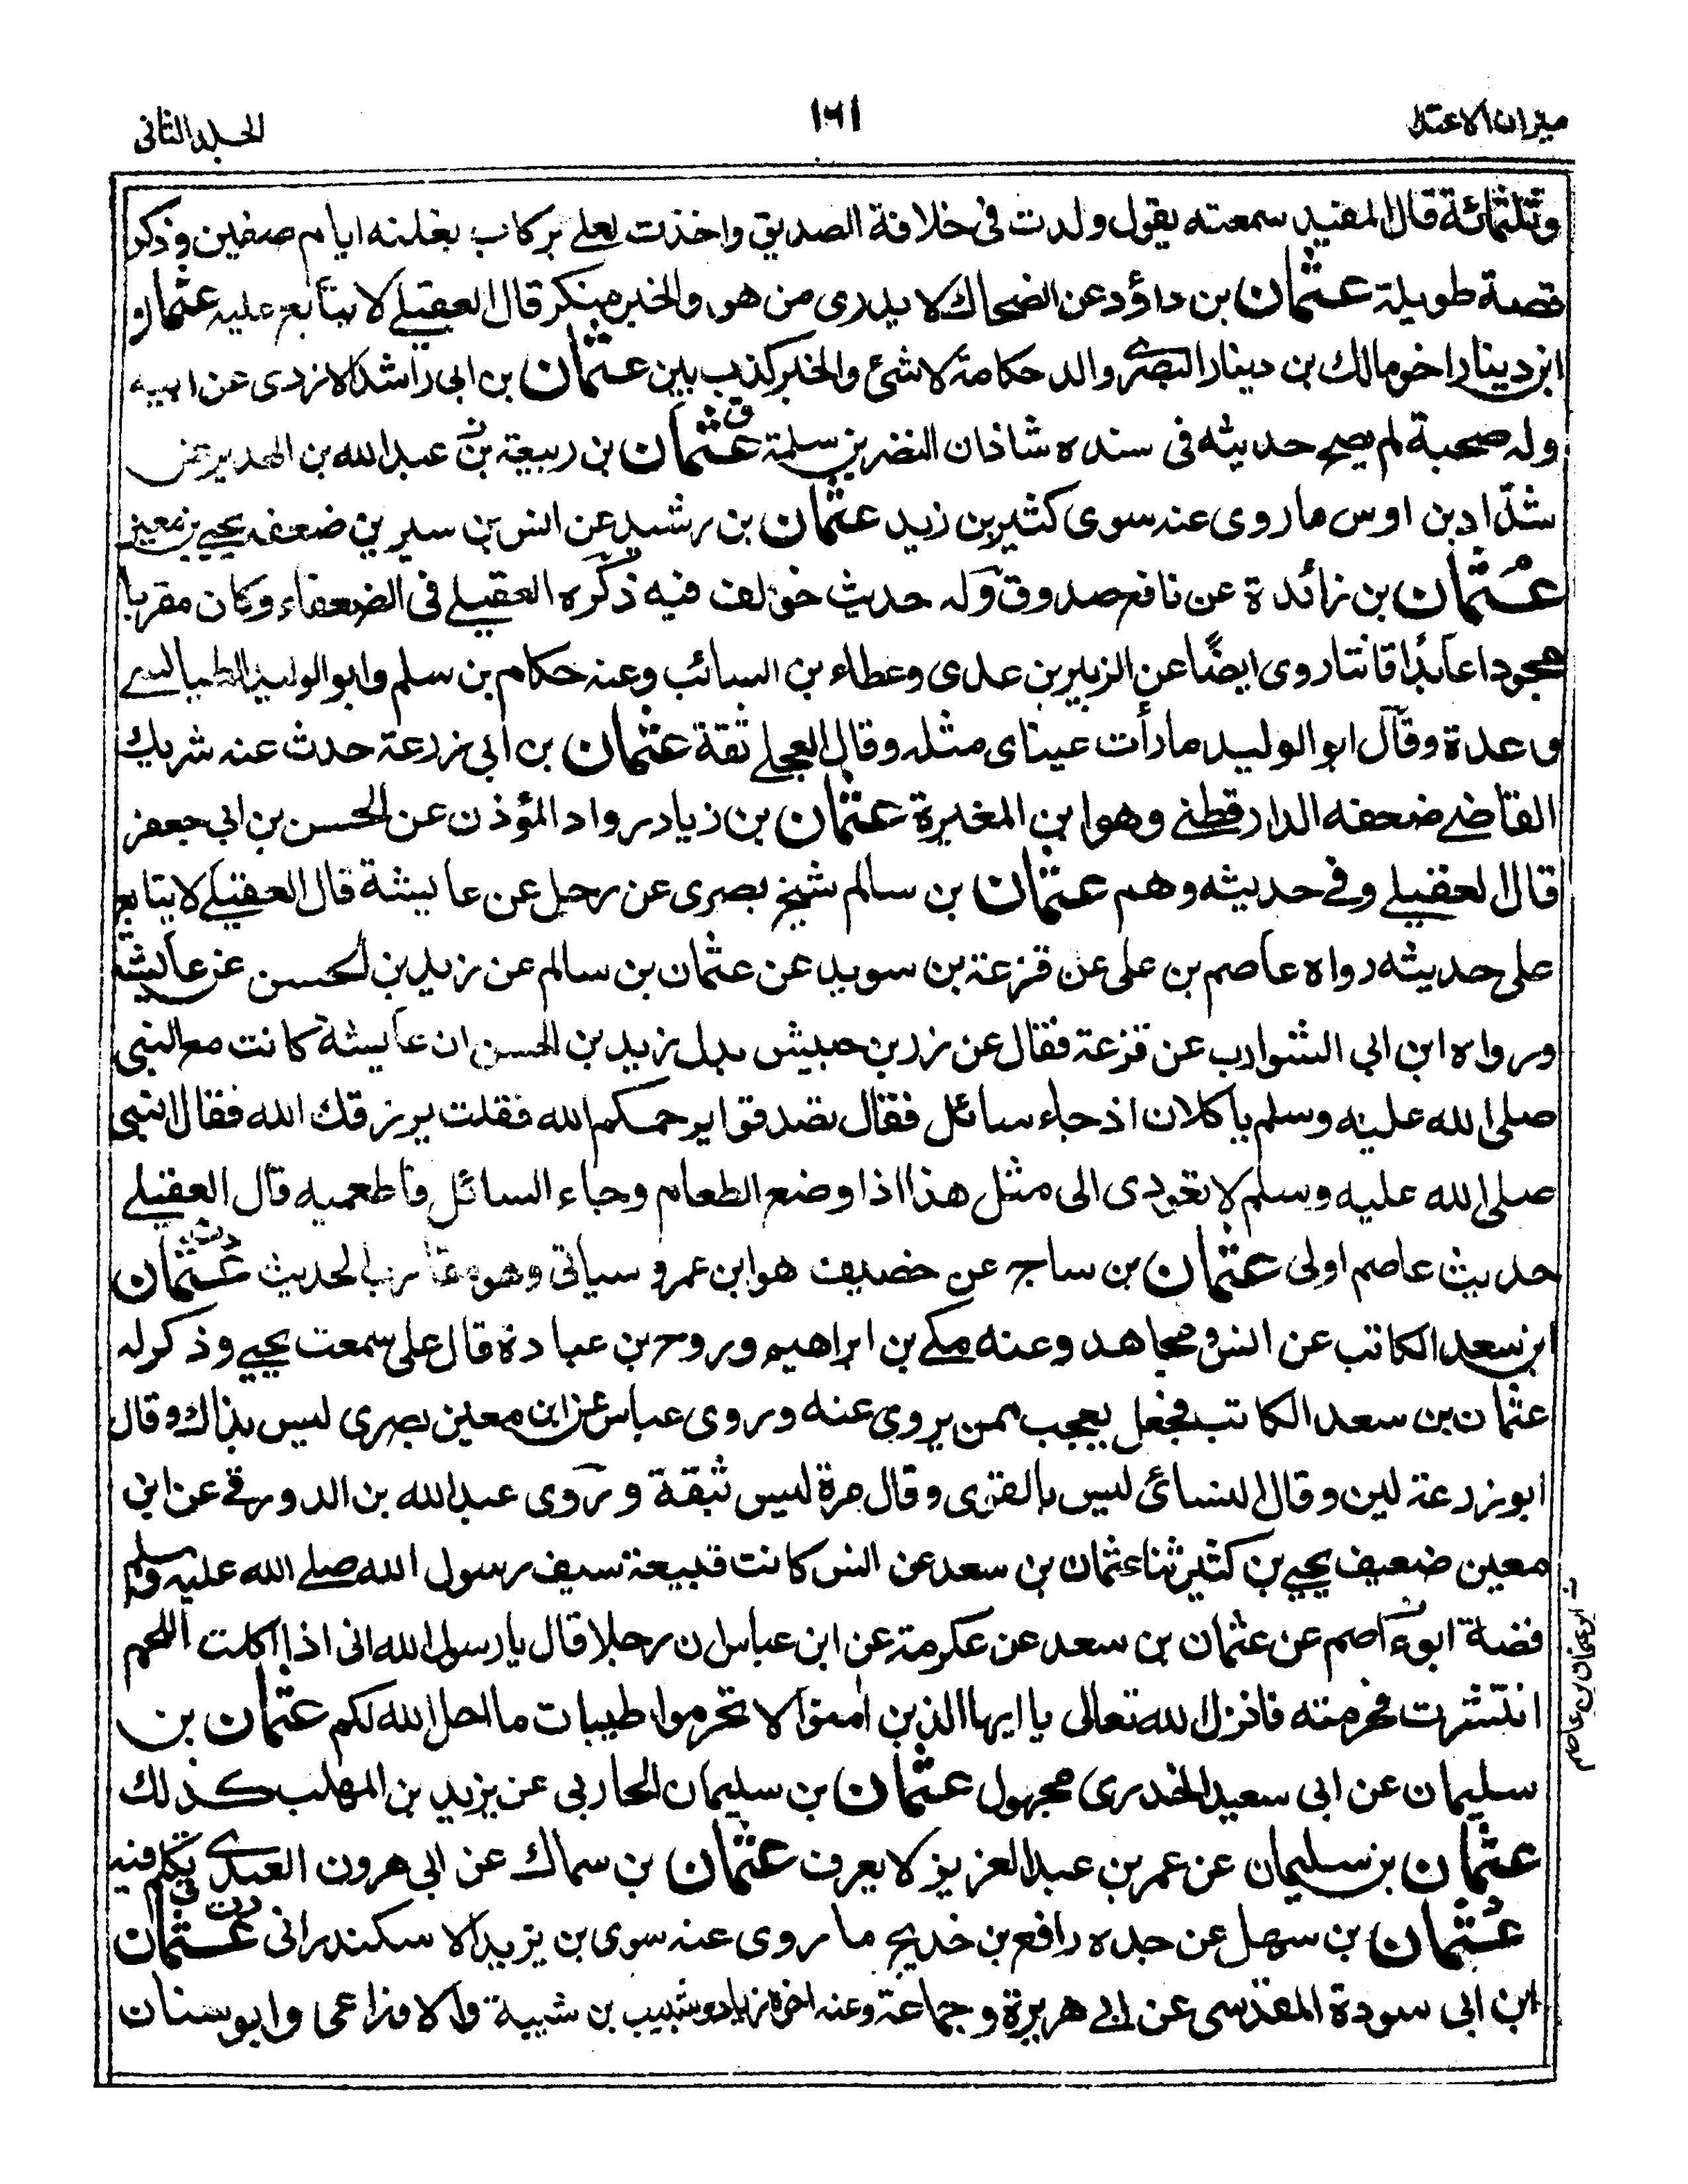 ميزان الاعتدال
١٦١
الجلد الثانى
وثلثمائة قال المفيد سمعته يقول ولدت فى خلافة الصديق واخذت لعلے بركاب بغلته ايام صفين وذكر
قصة طويلة عثمان بن داؤد عن الضحاك لا يدرى من هو والخبر منكر قال العقيلے لا يتابع عليه عثمان
ابن دينار اخو مالك بن دينار البصرى والد حكامة لا شئ والخبر كذب بين عثمان بن ابى راشد الازدى عن ابيه
وله صحبة لم يصح حديثه فى سنده شاذان النضر بن سلمة ق عثمان بن ربيعة بن عبد الله بن الهدير عن
شدّاد بن اوس ما روى عنه سوى كثير بن زيد عثمان بن رشيد عن انس بن سيرين ضعفه يحيے بن معين
عثمان بن زائدة عن نافع صدوق وله حديث خولف فيه ذكره العقيلے فى الضعفاء وكان مقربا
مجودا عابدا قانتا روى ايضًا عن الزبير بن عدى وعطاء بن السائب وعنه حكام بن سلم وابو الوليد الطيالسے
وعدة وقال ابو الوليد ما رأت عيناى مثله وقال العجلے ثقة عثمان بن ابى زرعة حدث عنه شريك
القاضے ضعفه الدارقطنے وهو ابن المغيرة عثمان بن زياد رواد المؤذن عن الحسن بن ابى جعفر
قال العقيلے وفے حديثه وهم عثمان بن سالم شيخ بصرى عن رجل عن عايشة قال العقيلے لا يتابع
على حديثه رواه عاصم بن على عن قزعة بن سويد عن عثمان بن سالم عن زيد بن الحسن عن عايشة
ورواه ابن ابى الشوارب عن قزعة فقال عن زر بن حبيش بدل زيد بن الحسن ان عايشة كانت مع النبى
صلى الله عليه وسلم ياكلان اذ جاء سائل فقال تصدقوا يرحمكم الله فقلت يرزقك الله فقال النبى
صلى الله عليه وسلم لا تعودى الى مثل هذا اذا وضع الطعام وجاء السائل فاطعميه قال العقيلے
حديث عاصم اولى عثمان بن ساج عن خصيف هو ابن عمرو سياتى وهو مقارب الحديث د ت عثمان
ابن سعد الكاتب عن انس ومجاهد وعنه مكے بن ابراهيم وروح بن عبادة قال على سمعت يحيے وذكر له
عثمان بن سعد الكاتب فجعل يعجب ممن يروى عنه وروى عباس عن ابن معين بصرى ليس بذاك وقال
ابو زرعة لين وقال النسائى ليس بالقوى وقال مرة ليس بثقة وروى عبد الله بن الدورقے عن ابن
معين ضعيف يحيے بن كثير ثنا عثمان بن سعد عن انس كانت قبيعة سيف رسول الله صلے الله عليه وسلم
فضة ابو عاصم عن عثمان بن سعد عن عكرمة عن ابن عباس ان رجلا قال يا رسول الله انى اذا اكلت اللحم
انتشرت فحرمته فانزل الله تعالى يا ايها الذين امنوا لا تحرموا طيبات ما احل الله لكم عثمان بن
سليمان عن ابى سعيد الخدرى مجهول عثمان بن سليمان الحاربى عن يزيد بن المهلب كذلك
عثمان بن سليمان عن عمر بن عبد العزيز لا يعرف عثمان بن سماك عن ابى هرون العبدى تكلم فيه
عثمان بن سهل عن جده رافع بن خديج ما روى عنه سوى بن يزيد الاسكندرانى د ت ق عثمان
ابن ابى سودة المقدسى عن ابے هريرة وجماعة وعنه اخوه زياد وشبيب بن شيبة والاوزاعى وابو سنان